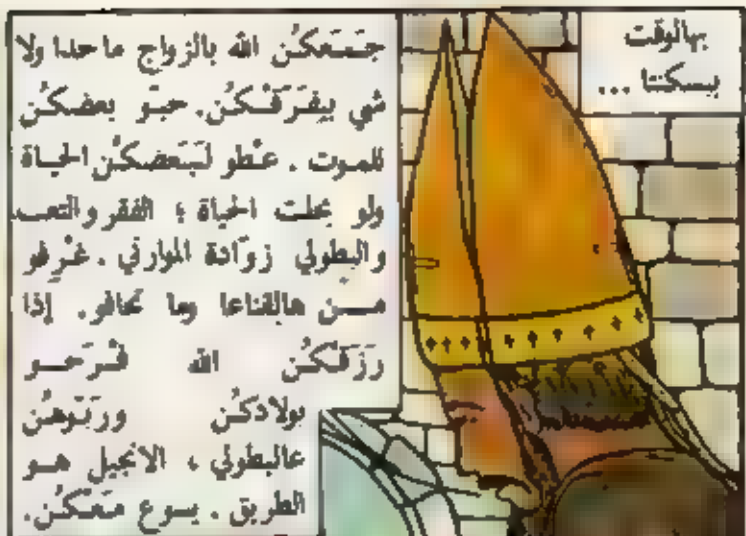 بهالوقت
ببسكنتا ...
جَمَعكُن الله بالزواج ما حدا ولا
شي بيفَرّقكُن. حبّو بعضكُن
للموت. عطو لبَعضكُن الحياة
ولو بخلت الحياة ؛ الفقر والتعب
والبطولي زوّادة الموارني. غرفو
من هالقناعا وما تخافو. إذا
رزَقكُن الله فرَحو
بولادكُن وربّوهُن
عالبطولي ، الانجيل هو
الطريق. يسوع مَعكُن.